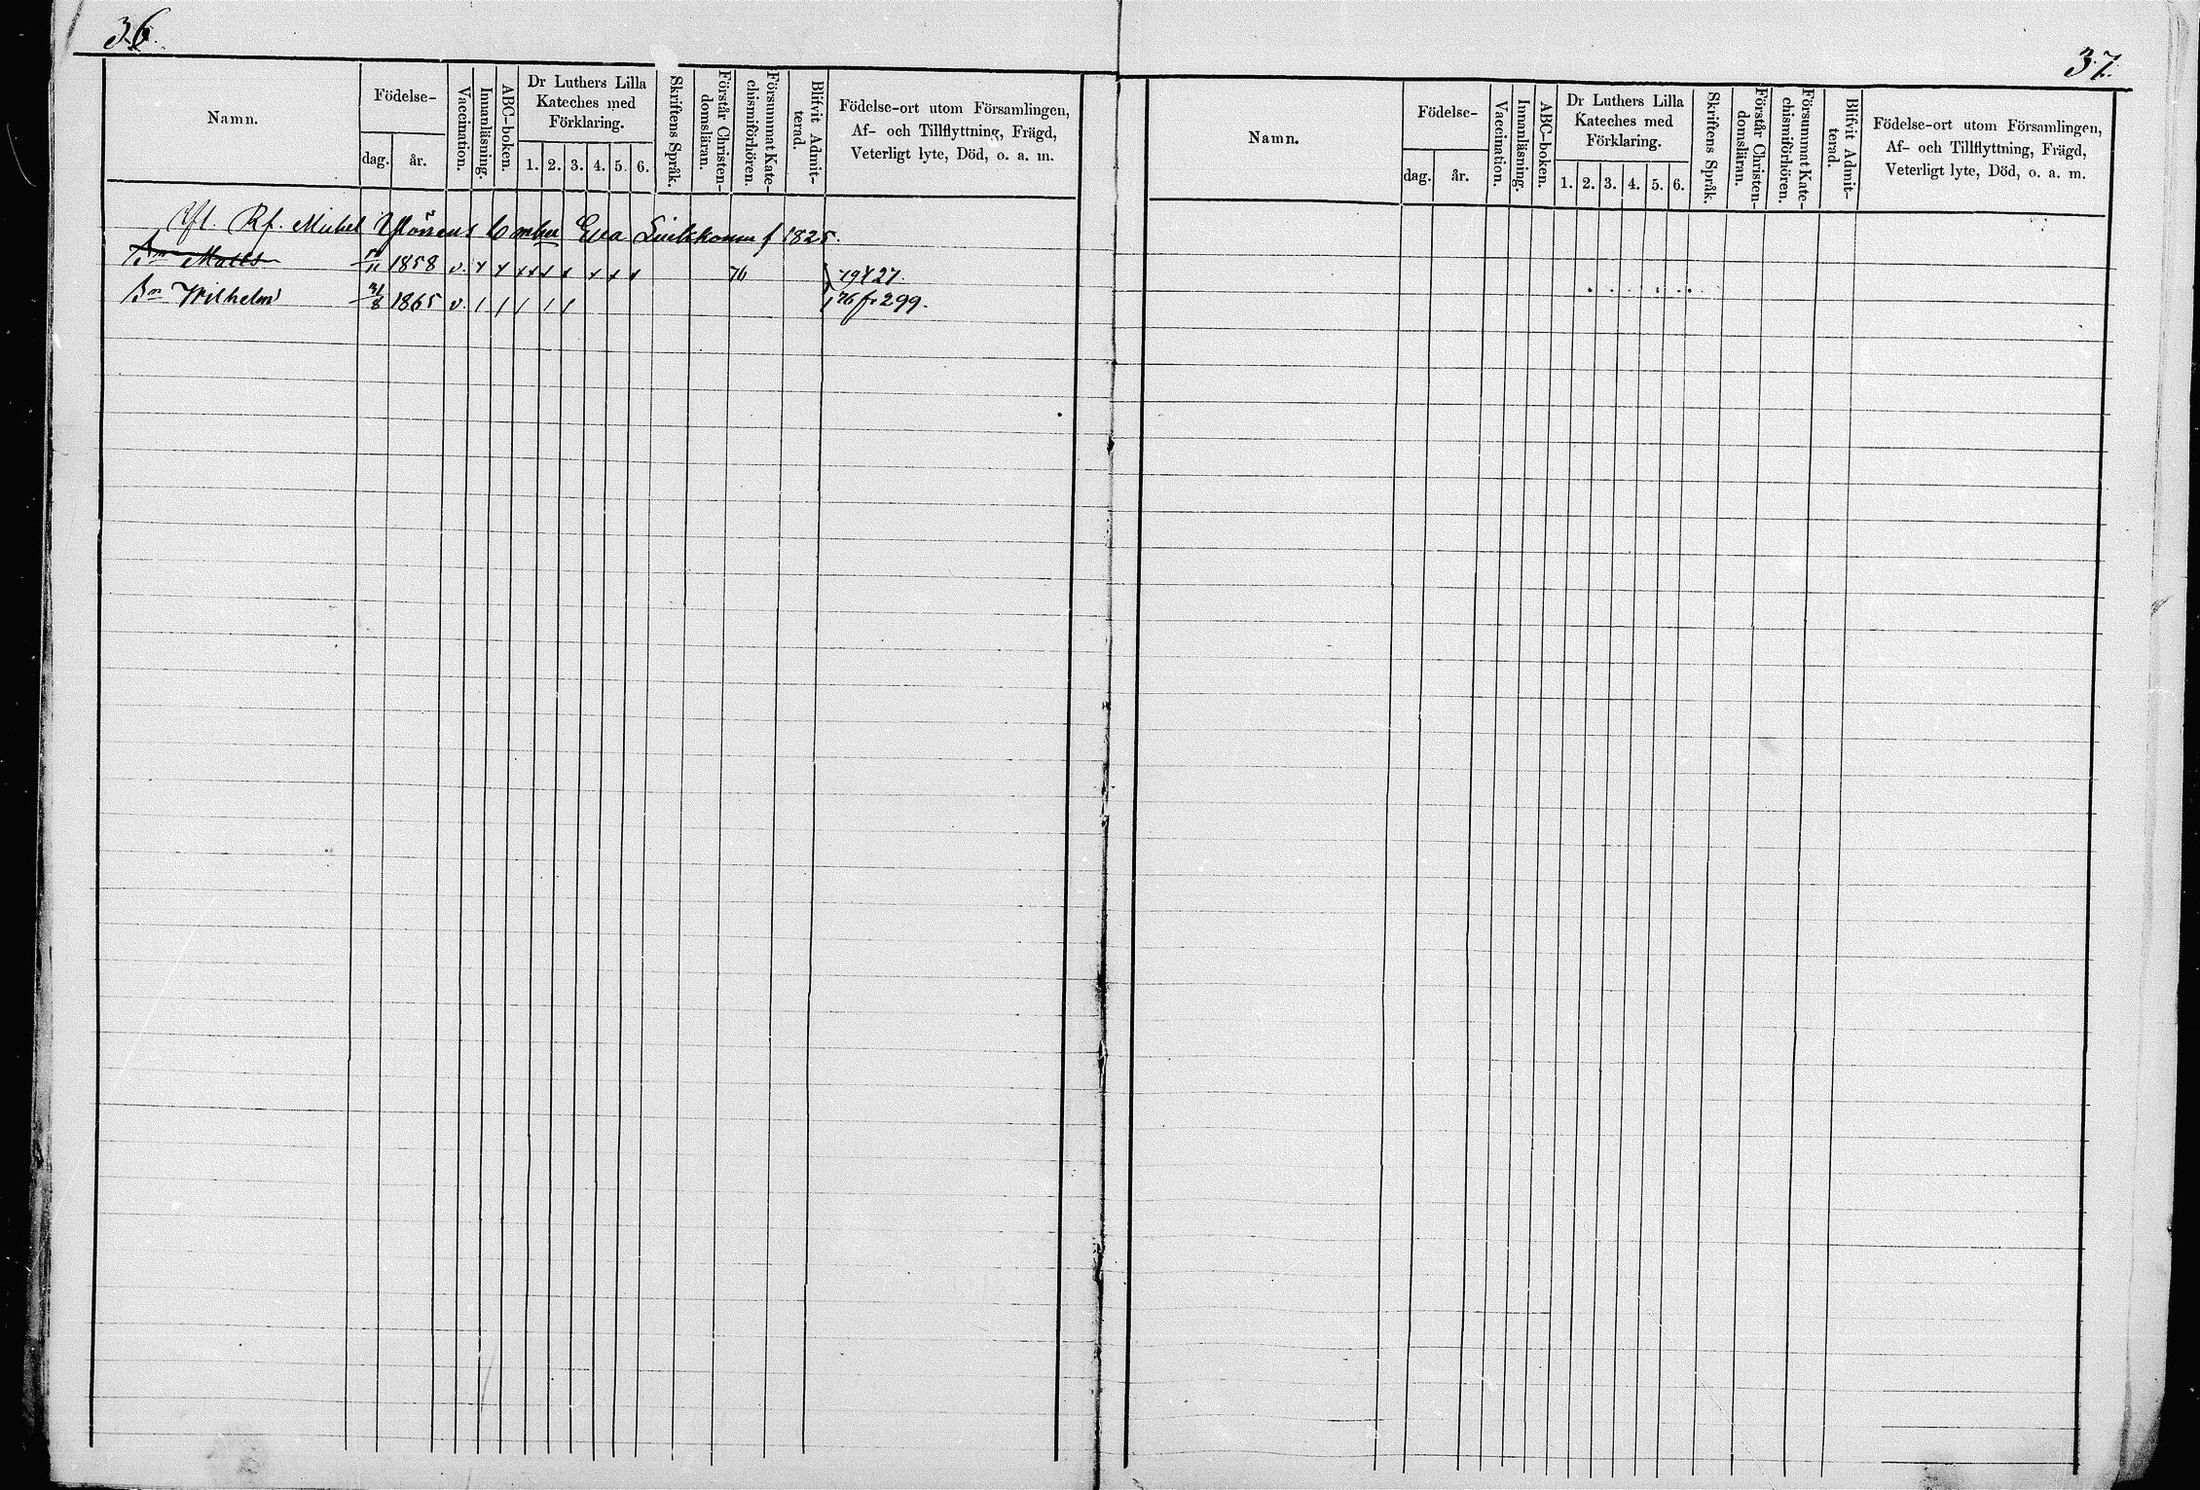 36.
37.
Namn.
Födelse-
dag. år.
Vaccination.
Innanläsning.
ABC-boken.
Dr Luthers Lilla
Kateches med
Förklaring.
1. 2. 3. 4. 5. 6.
Skriftens Språk.
Förstår Christen-
domsläran.
Försummat Kate-
chismiförhören.
Blifvit Admit-
terad.
Födelse-ort utom Församlingen,
Af- och Tillflyttning, Frägd,
Veterligt lyte, Död, o. a. m.
Rf. Michel Enka Eva f 1825.
Sn Matts 1858 v. x x x x x x x x x 76 79 t 27.
Sn Wilhelm 31/8 1865 v. / / / / / 76 fr 299.
Namn.
Födelse-
dag. år.
Vaccination.
Innanläsning.
ABC-boken.
Dr Luthers Lilla
Kateches med
Förklaring.
1. 2. 3. 4. 5. 6.
Skriftens Språk.
Förstår Christen-
domsläran.
Försummat Kate-
chismiförhören.
Blifvit Admit-
terad.
Födelse-ort utom Församlingen,
Af- och Tillflyttning, Frägd,
Veterligt lyte, Död, o. a. m.